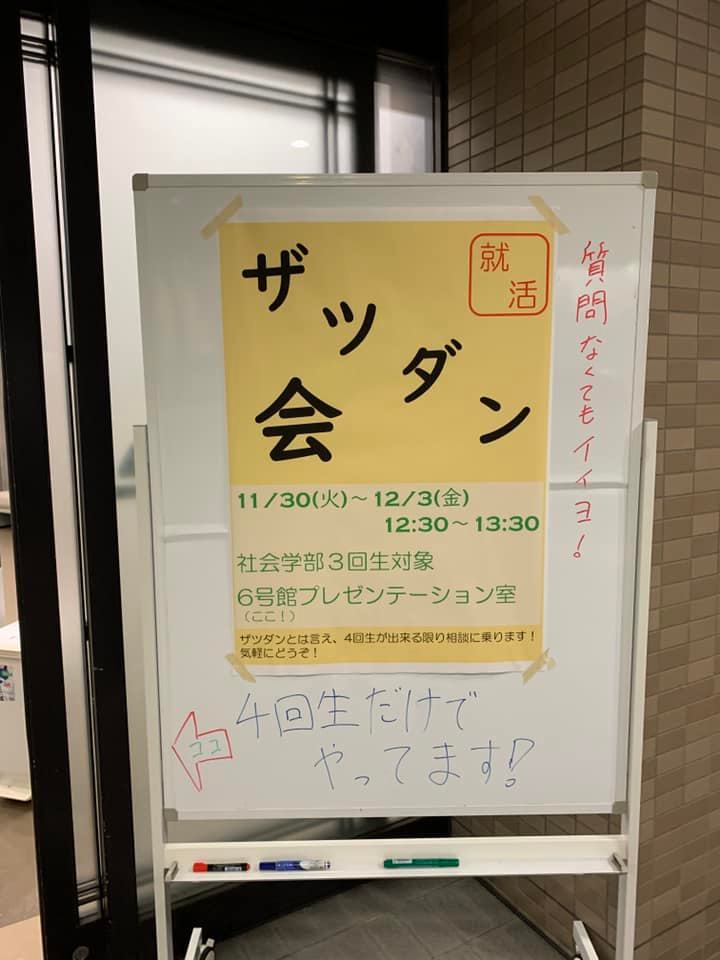 就活
ザツダン
会
11/30(火)～12/3(金)
12:30～13:30
社会学部3回生対象
6号館プレゼンテーション室
(ここ!)
ザツダンとは言え、4回生が出来る限り相談に乗ります!
気軽にどうぞ!
質問なくてもイイヨ!
4回生だけで
やってます!
ココ